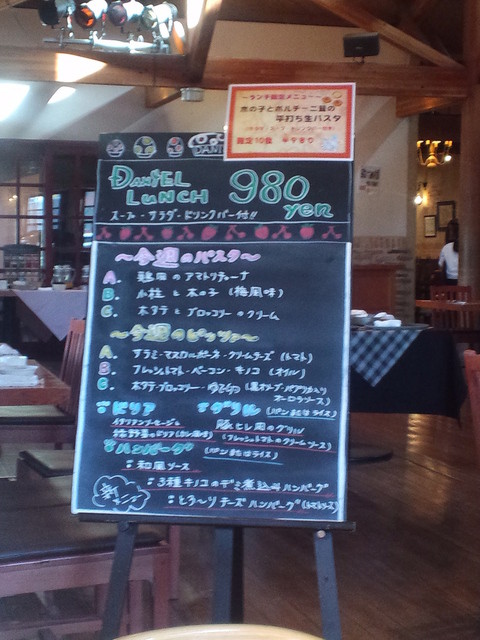 〜ランチ限定メニュー〜
木の子とポルチーニ茸の
平打ち生パスタ
限定10食
DANI
DANIEL LUNCH 980 yen
スープ・サラダ・ドリンクバー付!!
〜今週のパスタ〜
A. 鶏肉のアマトリチャーナ
B. 小柱と木の子(梅風味)
C. ホタテとブロッコリーのクリーム
〜今週のピッツァ〜
A. サラミ・マスカルポーネ・クリームチーズ(トマト)
B. フレッシュトマト・ベーコン・キノコ(オイル)
C. ホタテ・ブロッコリー・ゆでたまご(黒オリーブ・パプリカ入り
オーロラソース)
ドリア
イタリアンソーセージと
彩野菜のドリア(カレー風味)
グリル(パンまたはライス)
豚ヒレ肉のグリル
(フレッシュトマトのクリームソース)
ハンバーグ(パンまたはライス)
和風ソース
3種キノコのデミ煮込みハンバーグ
とろ〜りチーズハンバーグ(トマトソース)